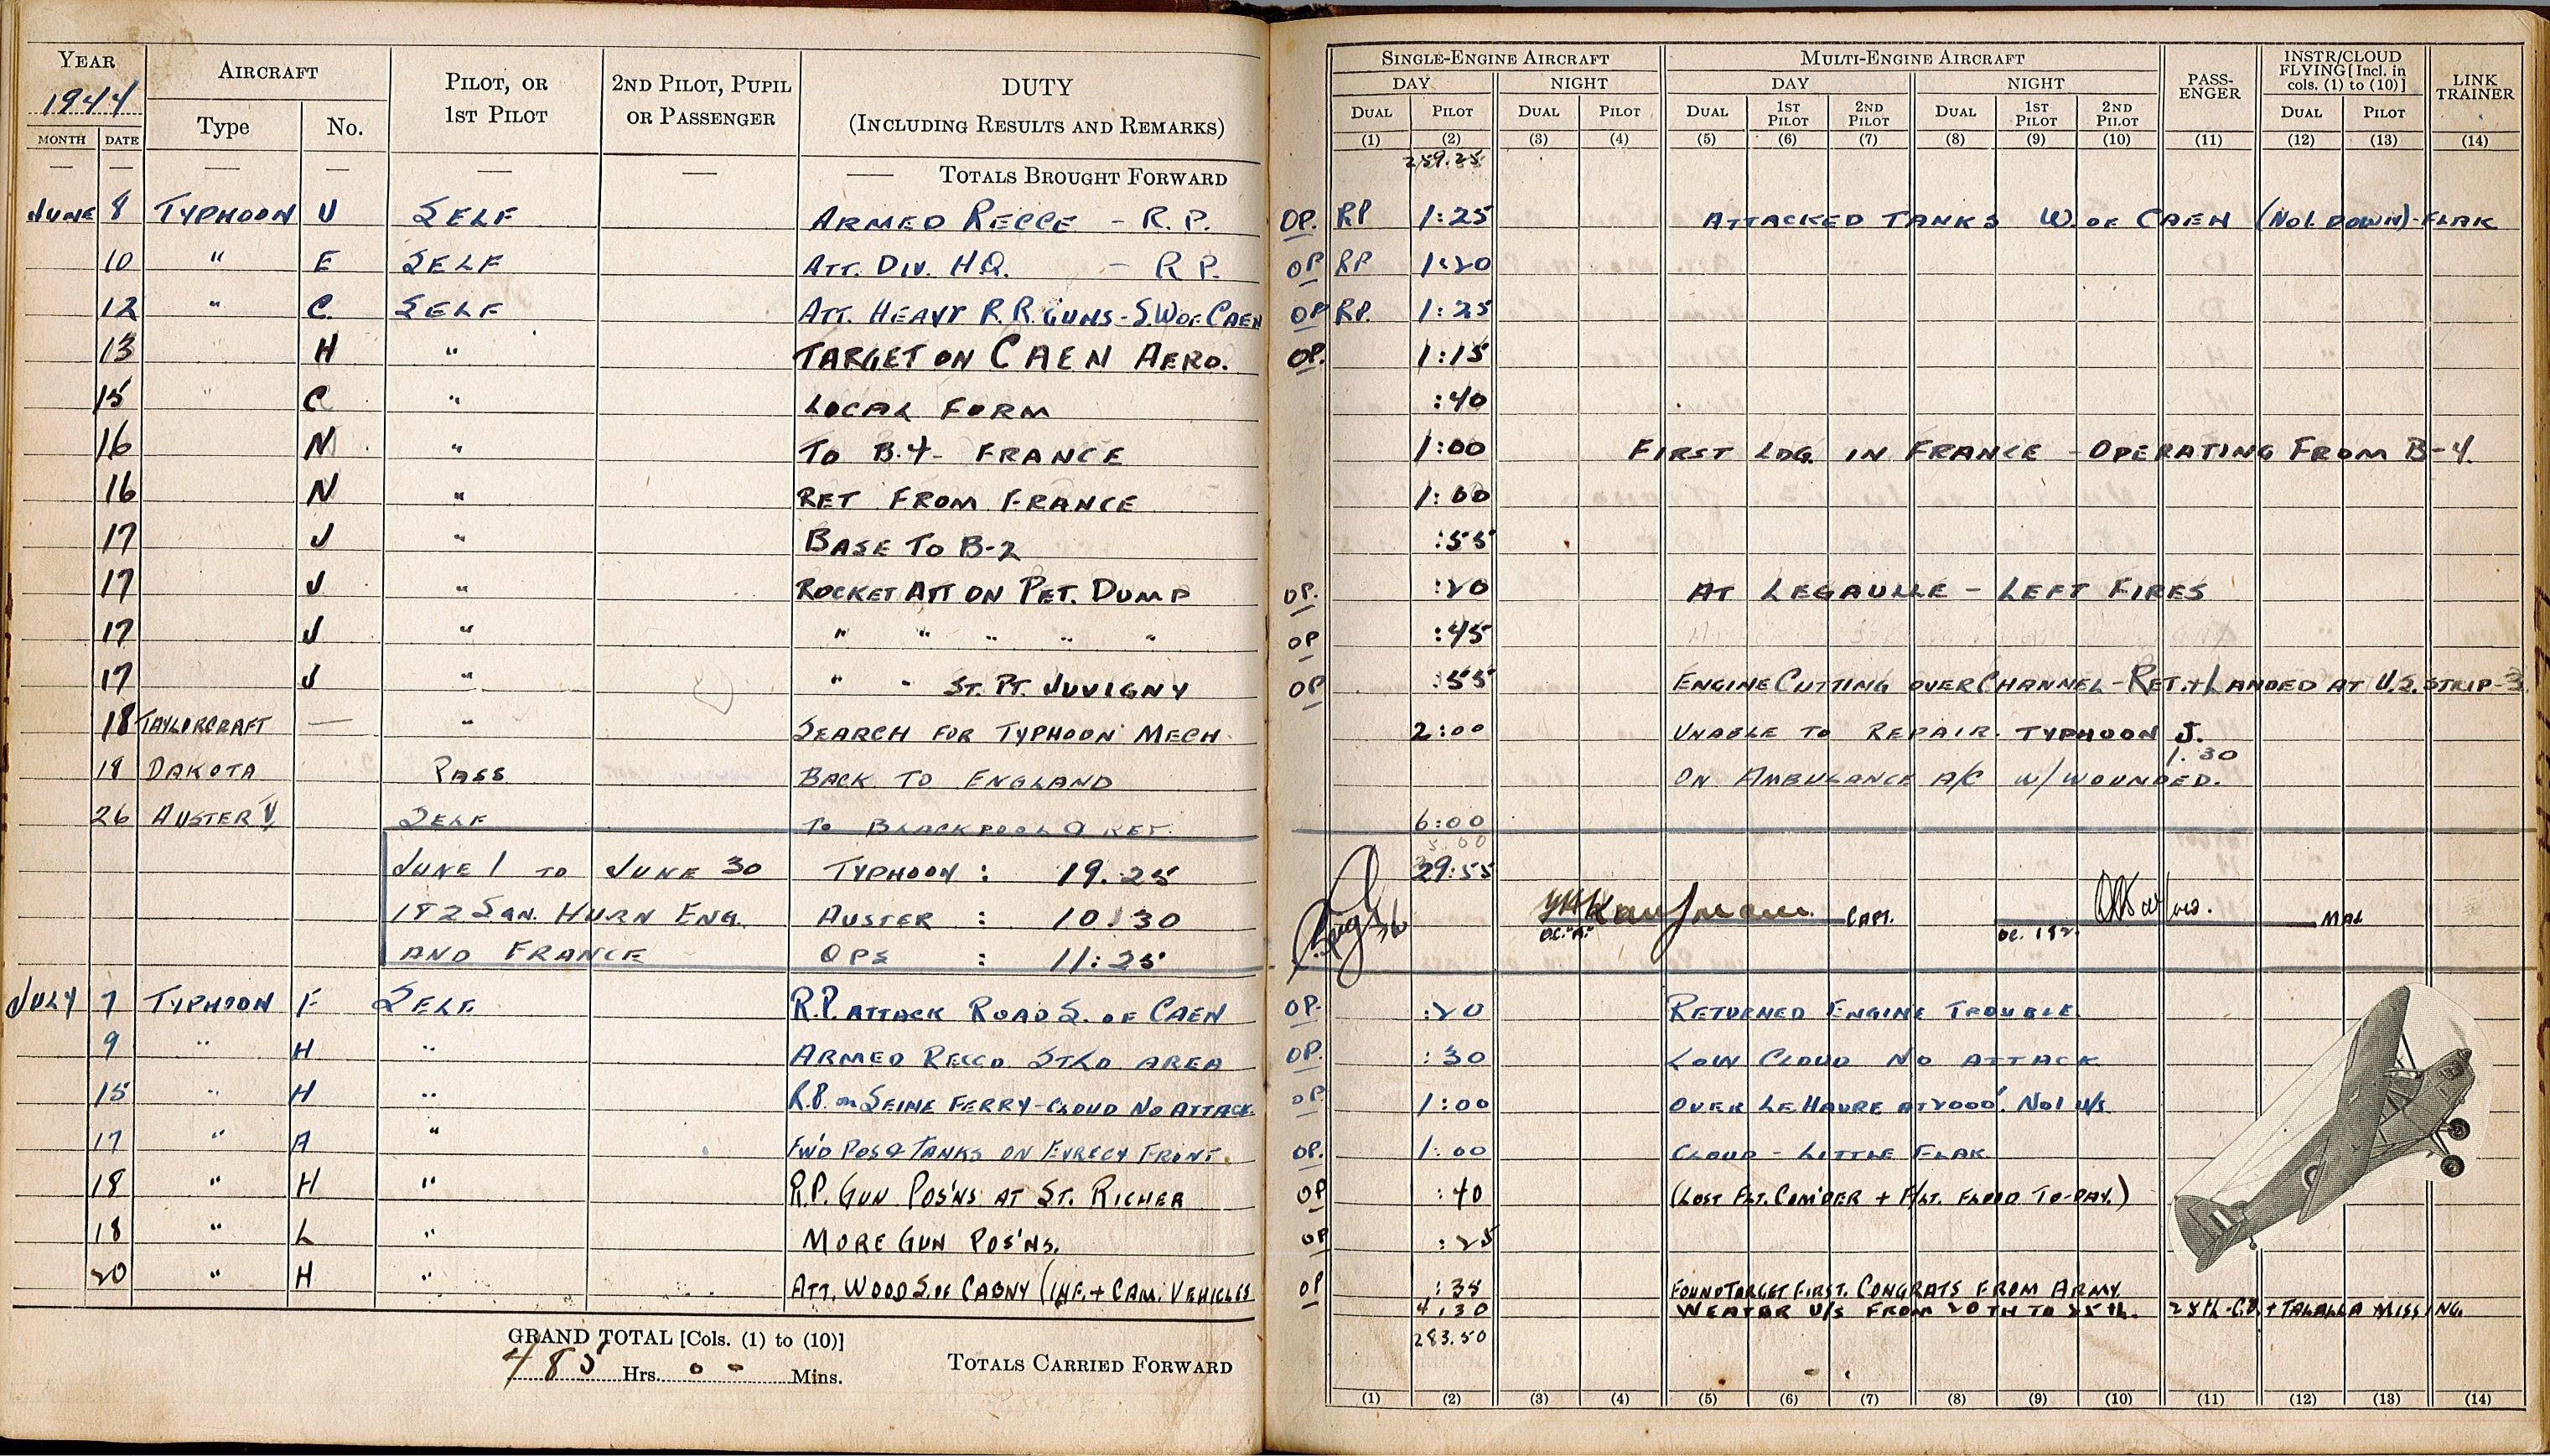 YEAR 1944
AIRCRAFT
PILOT, OR 1ST PILOT
2ND PILOT, PUPIL OR PASSENGER
DUTY (INCLUDING RESULTS AND REMARKS)
MONTH DATE Type No.
— — — — — — — TOTALS BROUGHT FORWARD
SINGLE-ENGINE AIRCRAFT MULTI-ENGINE AIRCRAFT PASSENGER INSTR/CLOUD FLYING [Incl. in cols. (1) to (10)] LINK TRAINER
DAY NIGHT DAY NIGHT
DUAL PILOT DUAL PILOT DUAL 1ST PILOT 2ND PILOT DUAL 1ST PILOT 2ND PILOT DUAL PILOT
(1) (2) (3) (4) (5) (6) (7) (8) (9) (10) (11) (12) (13) (14)
259.25
JUNE 8 TYPHOON U SELF ARMED RECCE - R.P. OP. RP 1:25 ATTACKED TANKS W. OF CAEN (No1. DOWN) - FLAK
10 " E SELF ATT. DIV. H.Q. - R.P. OP RP 1:20
12 " C. SELF ATT. HEAVY R.R. GUNS - S.W OF CAEN OP RP. 1:25
13 H " TARGET ON CAEN AERO. OP. 1:15
15 " C " LOCAL FORM :40
16 N " TO B.4 - FRANCE 1:00 FIRST LDG. IN FRANCE - OPERATING FROM B-4.
16 N " RET FROM FRANCE 1:00
17 J " BASE TO B-2 :55
17 J " ROCKET ATT ON PET. DUMP OP. :20 AT LEGAULLE - LEFT FIRES
17 J " " " " " " OP :45
17 J " " " ST. PT. JUVIGNY OP :55 ENGINE CUTTING OVER CHANNEL - RET. + LANDED AT U.S. STRIP-3
18 TAYLORCRAFT — " SEARCH FOR TYPHOON MECH 2:00 UNABLE TO REPAIR TYPHOON J.
18 DAKOTA PASS BACK TO ENGLAND ON AMBULANCE A/C W/ WOUNDED. 1.30
26 AUSTER V, SELF TO BLACKPOOL & RET. 6:00
JUNE 1 TO JUNE 30 TYPHOON : 19.25 29:55
182 SQN. HURN ENG. AUSTER : 10:30 Kaufmann CAPT. MAL
O.C. "A" OC. 182.
AND FRANCE OPS : 11:25
JULY 7 TYPHOON F SELF. R.P. ATTACK ROAD S. OF CAEN OP. :20 RETURNED ENGINE TROUBLE.
9 " H " ARMED RECCO. ST LO AREA OP. :30 LOW CLOUD NO ATTACK
15 " H " R.P. on SEINE FERRY - CLOUD NO ATTACK. OP 1:00 OVER LE HAVRE AT 7000'. No1 U/S
17 " A " FW'D POS & TANKS ON EVRECY FRONT. OP. 1:00 CLOUD - LITTLE FLAK
18 " H " R.P. GUN POS'NS AT ST. RICHER OP :40 (LOST FLT. COM'DER + F/LT. FLOOD TO-DAY.)
18 " L " MORE GUN POS'NS. OP :25
20 " H " ATT. WOOD S. OF CAGNY (INF. + CAM. VEHICLES OP :35 FOUND TARGET FIRST. CONGRATS FROM ARMY.
4:30 WEATAR U/S FROM 20TH TO 25th. 25th - C.O. + TALALLA MISSING.
283.50
GRAND TOTAL [Cols. (1) to (10)]
485 Hrs. 00 Mins.
TOTALS CARRIED FORWARD
(1) (2) (3) (4) (5) (6) (7) (8) (9) (10) (11) (12) (13) (14)